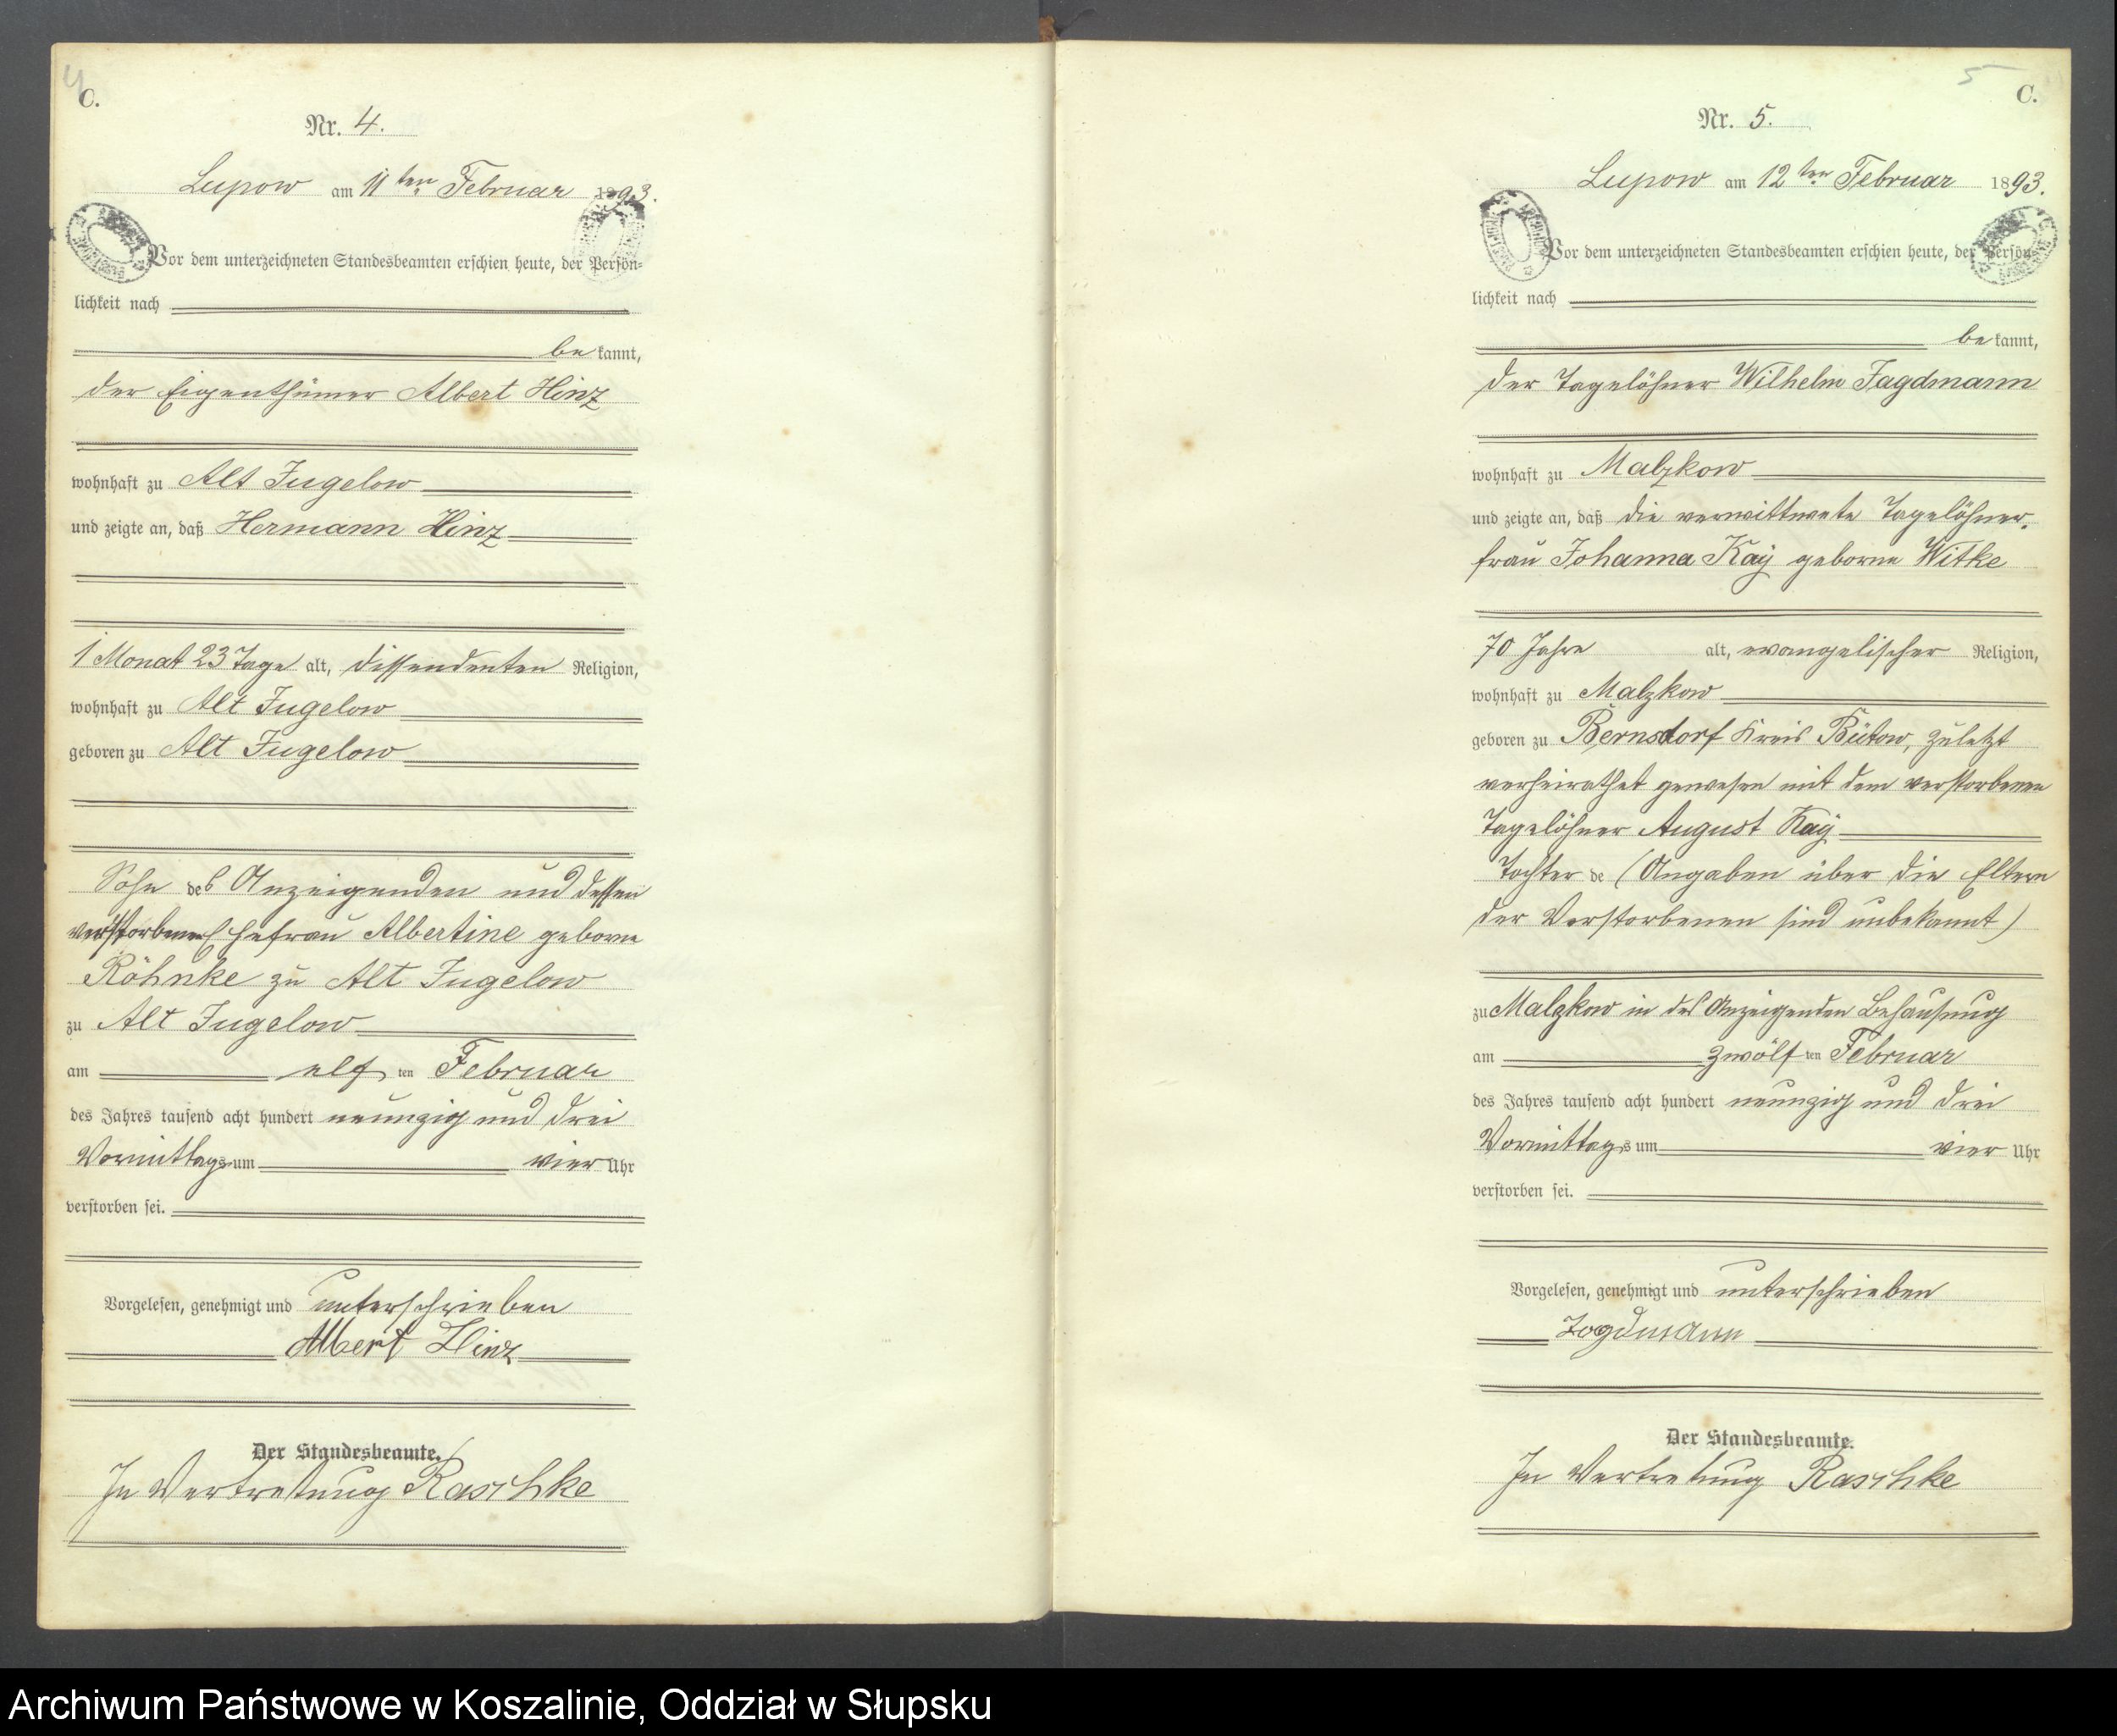 4
C.
Nr. 4.
Lupow am 11ten Februar 1893.
Vor dem unterzeichneten Standesbeamten erschien heute, der Persön-
lichkeit nach
be kannt,
der Eigenthümer Albert Hinz
wohnhaft zu Alt Jugelow
und zeigte an, daß Hermann Hinz
1 Monat 23 Tage alt, dissendenten Religion,
wohnhaft zu Alt Jugelow
geboren zu Alt Jugelow
Sohn des Anzeigenden und dessen
verstorbenen Ehefrau Albertine geborne
Röhnke zu Alt Jugelow
zu Alt Jugelow
am elf ten Februar
des Jahres tausend acht hundert neunzig und drei
Vormittags um vier Uhr
verstorben sei.
Vorgelesen, genehmigt und unterschrieben
Albert Hinz
Der Standesbeamte.
In Vertretung Raschke
5
C.
Nr. 5.
Lupow am 12ten Februar 1893.
Vor dem unterzeichneten Standesbeamten erschien heute, der Persön-
lichkeit nach
be kannt,
der Tagelöhner Wilhelm Jagdmann
wohnhaft zu Malzkow
und zeigte an, daß die verwittwete Tagelöhner-
frau Johanna Kaÿ geborne Witke
70 Jahre alt, evangelischer Religion,
wohnhaft zu Malzkow
geboren zu Bernsdorf Kreis Bütow, zuletzt
verheirathet gewesen mit dem verstorbenen
Tagelöhner August Kaÿ
Tochter de (Angaben über die Eltern
der Verstorbenen sind unbekannt)
zu Malzkow in des Anzeigenden Behausung
am zwölf ten Februar
des Jahres tausend acht hundert neunzig und drei
Vormittags um vier Uhr
verstorben sei.
Vorgelesen, genehmigt und unterschrieben
Jagdmann
Der Standesbeamte.
In Vertretung Raschke
Archiwum Państwowe w Koszalinie, Oddział w Słupsku